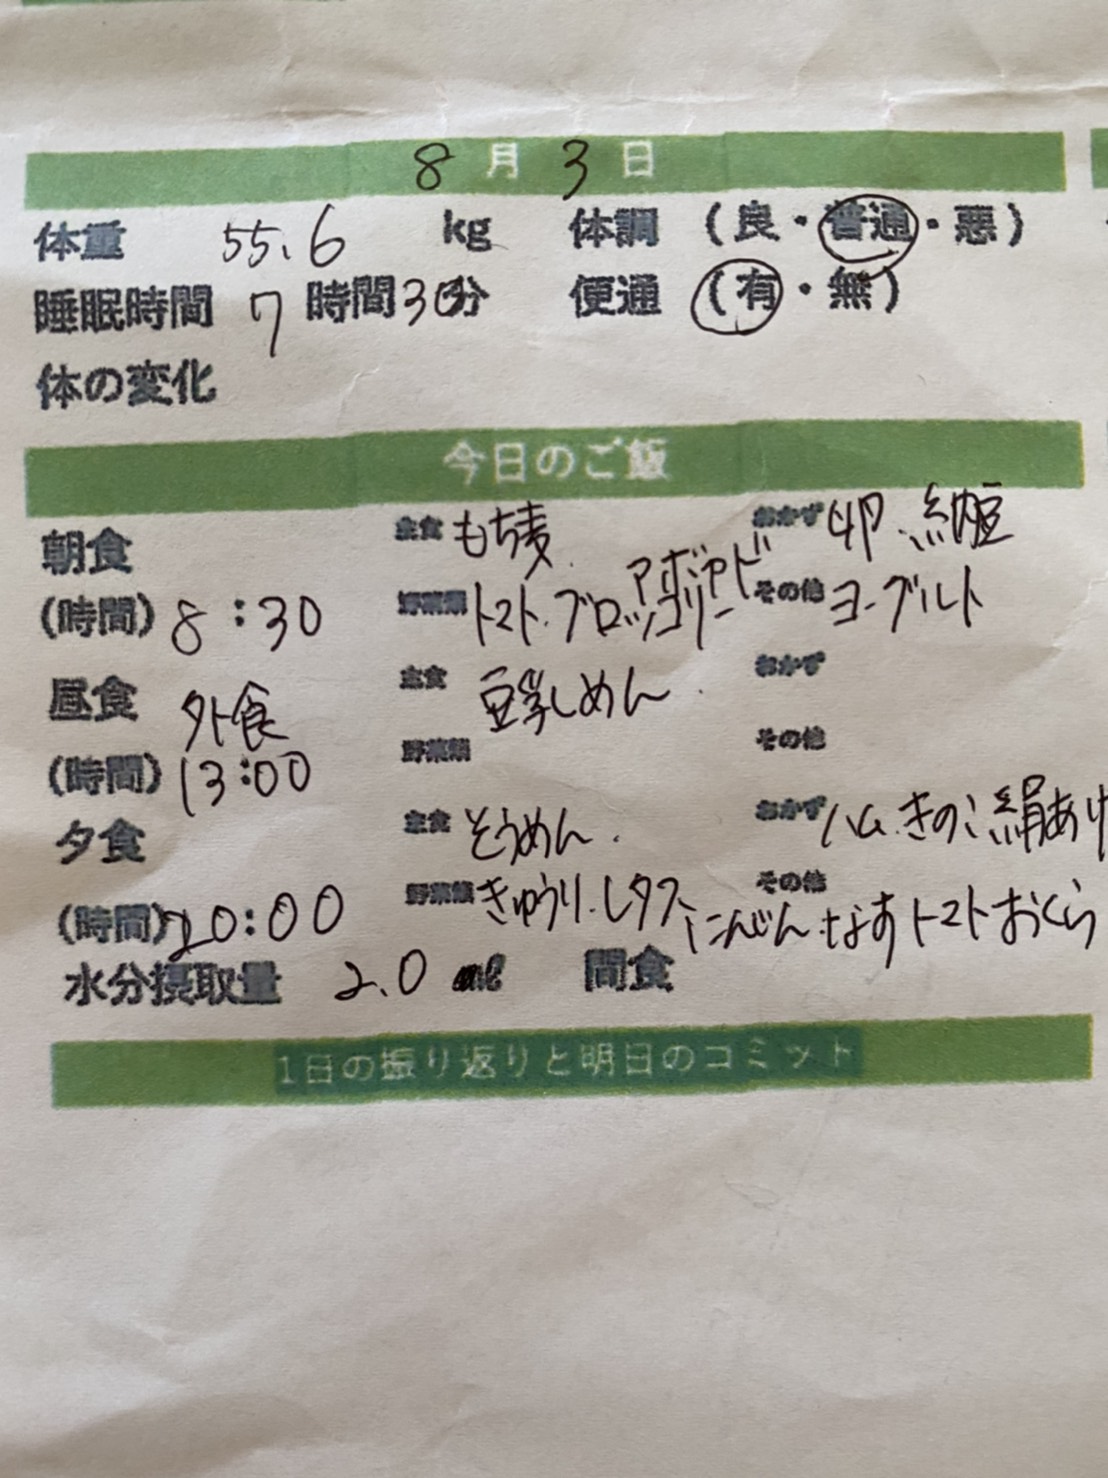 8月3日
体重 55.6 kg 体調 (良・普通・悪)
睡眠時間 7時間30分 便通 (有・無)
体の変化
今日のご飯
朝食 主食 もち麦 おかず 卵、納豆
アボカド
(時間) 8:30 野菜類 トマト、ブロッコリー その他 ヨーグルト
昼食 外食 主食 豆乳しめん おかず
(時間) 13:00 野菜類 その他
夕食 主食 そうめん おかず ハム、きのこ 絹あげ
(時間) 20:00 野菜類 きゅうり、レタス、にんじん、なす トマト おくら その他
水分摂取量 2.0 l 間食
1日の振り返りと明日のコミット